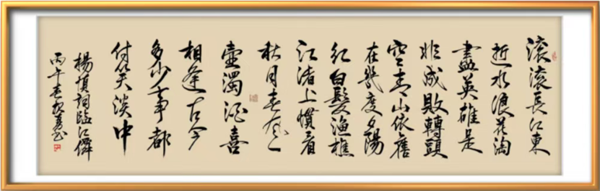 滚滚長江東
逝水浪花淘
盡英雄是
非成敗轉頭
空青山依舊
在幾度夕陽
紅白髮漁樵
江渚上慣看
秋月春風一
壺濁酒喜
相逢古今
多少事都
付笑淡中
楊慎詞臨江僊
丙午春